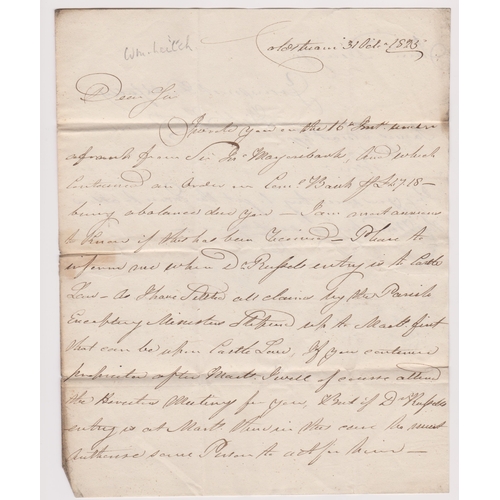 Wm. Leitch
Coldstream 31 Octr. 1825
Dear Sir
I wrote you on the 16th Inst. under
a frank from Sir Jno. Marjoribank, and which
contained an order on Coml. Bank of £47.18 –
being a balance due you – I am most anxious
to know if this has been received – Please to
inform me when Dr. Russels entry is to Castle
Law – as I have settled all claims by the Parish
Excepting Ministers Stipend up to Martt. first
that can be upon Castle Law, If you continue
proprietor after Martt. I will of course attend
the Heretors Meeting for you, But if Dr. Russels
entry is at Martt. then in this case he must
authorise some Person to act for him –